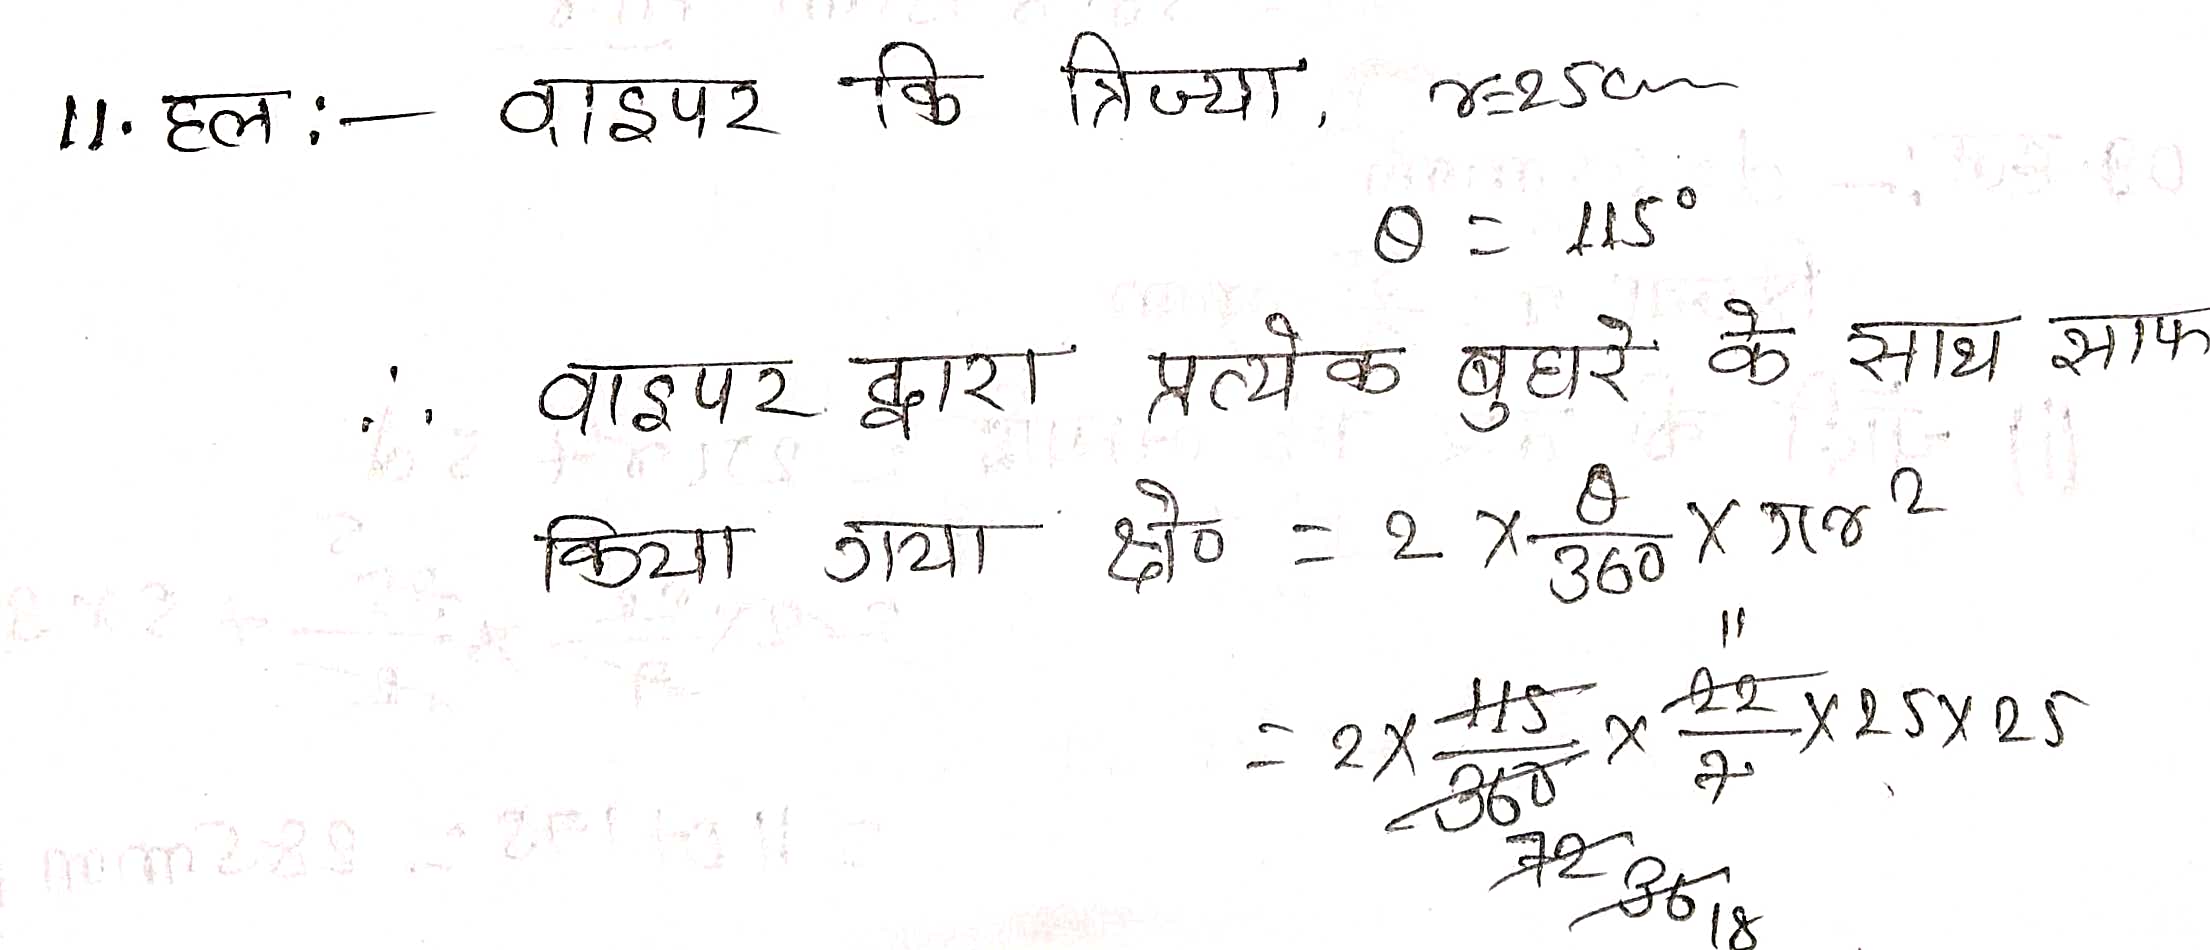 11. हल :— वाइपर कि त्रिज्या, r=25cm
θ = 115°
∴ वाइपर द्वारा प्रत्येक बुघरे के साथ साफ
किया गया क्षे० = 2 × θ/360 × πr²
= 2 × 115/360 × 22/7 × 25 × 25
11
72 36 18